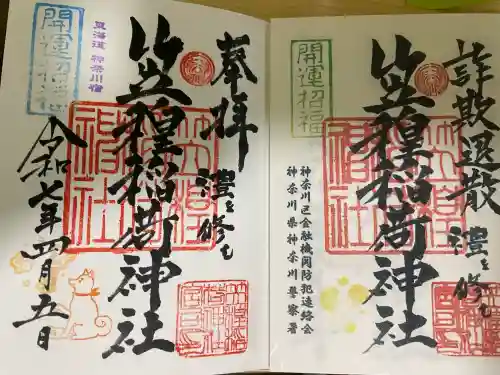 詐欺退散
禮を修む
笠䅣稲荷神社
神奈川区金融機関防犯連絡会
神奈川県神奈川警察署
開運招福
奉拝
禮を修む
笠䅣稲荷神社
東海道 神奈川宿
開運招福
令和七年四月五日